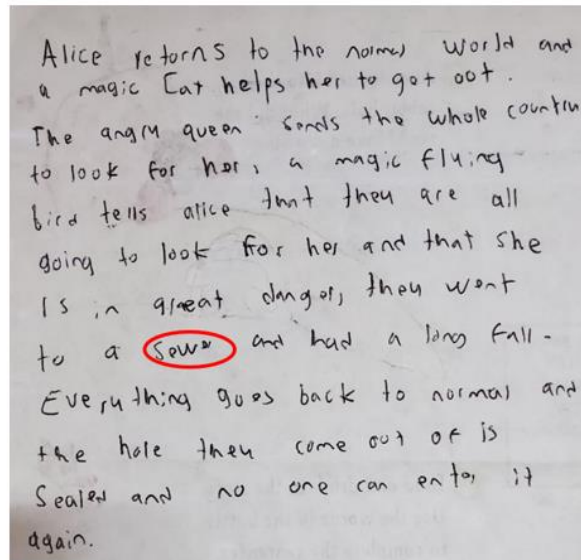 Alice retorns to the normal world and
a magic Cat helps her to got oot.
The angry queen sends the whole country
to look for her, a magic flying
bird tells alice that they are all
going to look for her and that she
Is in great danger, they went
to a sewe and had a long fall.
Everything goes back to normal and
the hole they come out of is
Sealed and no one can enter it
again.